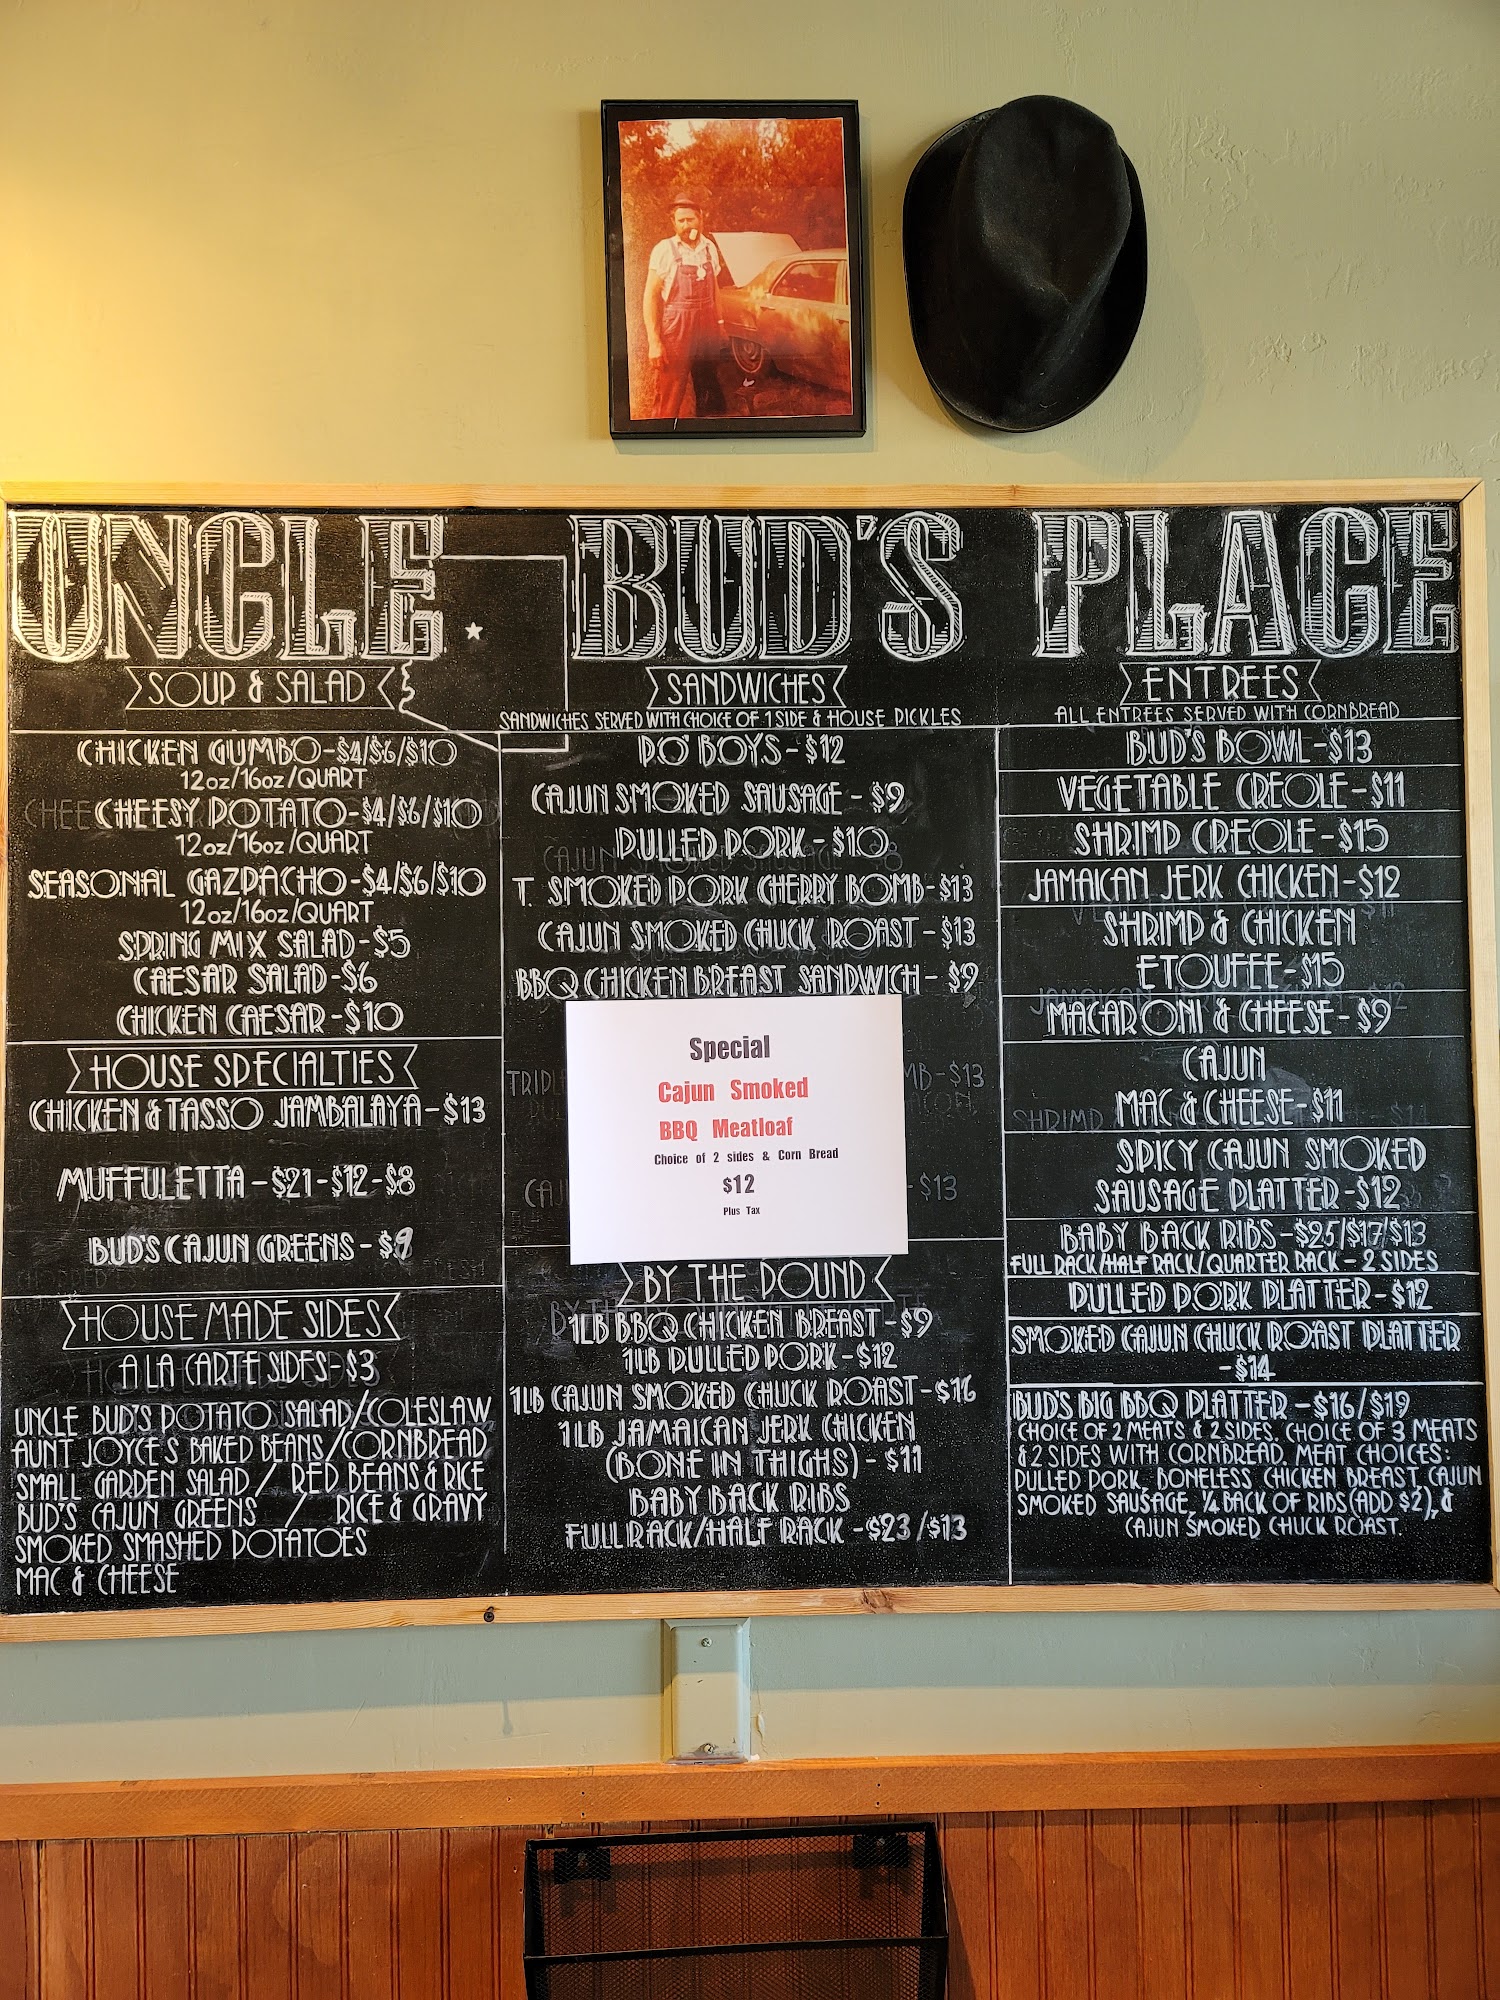 UNCLE BUD'S PLACE
SOUP & SALAD
CHICKEN GUMBO-$4/$6/$10
12oz/16oz/QUART
CHEESY POTATO-$4/$6/$10
12oz/16oz/QUART
SEASONAL GAZPACHO-$4/$6/$10
12oz/16oz/QUART
SPRING MIX SALAD-$5
CAESAR SALAD-$6
CHICKEN CAESAR-$10
HOUSE SPECIALTIES
CHICKEN & TASSO JAMBALAYA-$13
MUFFULETTA-$21-$12-$8
BUD'S CAJUN GREENS-$9
HOUSE MADE SIDES
A LA CARTE SIDES-$3
UNCLE BUD'S POTATO SALAD/COLESLAW
AUNT JOYCE'S BAKED BEANS/CORNBREAD
SMALL GARDEN SALAD / RED BEANS & RICE
BUD'S CAJUN GREENS / RICE & GRAVY
SMOKED SMASHED POTATOES
MAC & CHEESE
SANDWICHES
SANDWICHES SERVED WITH CHOICE OF 1 SIDE & HOUSE PICKLES
PO' BOYS-$12
CAJUN SMOKED SAUSAGE-$9
PULLED PORK-$10
T. SMOKED PORK CHERRY BOMB-$13
CAJUN SMOKED CHUCK ROAST-$13
BBQ CHICKEN BREAST SANDWICH-$9
Special
Cajun Smoked
BBQ Meatloaf
Choice of 2 sides & Corn Bread
$12
Plus Tax
BY THE POUND
1LB BBQ CHICKEN BREAST-$9
1LB PULLED PORK-$12
1LB CAJUN SMOKED CHUCK ROAST-$16
1LB JAMAICAN JERK CHICKEN
(BONE IN THIGHS)-$11
BABY BACK RIBS
FULL RACK/HALF RACK-$23/$13
ENTREES
ALL ENTREES SERVED WITH CORNBREAD
BUD'S BOWL-$13
VEGETABLE CREOLE-$11
SHRIMP CREOLE-$15
JAMAICAN JERK CHICKEN-$12
SHRIMP & CHICKEN
ETOUFEE-$15
MACARONI & CHEESE-$9
CAJUN
MAC & CHEESE-$11
SPICY CAJUN SMOKED
SAUSAGE PLATTER-$12
BABY BACK RIBS-$25/$17/$13
FULL RACK/HALF RACK/QUARTER RACK-2 SIDES
PULLED PORK PLATTER-$12
SMOKED CAJUN CHUCK ROAST PLATTER
-$14
BUD'S BIG BBQ PLATTER-$16/$19
CHOICE OF 2 MEATS & 2 SIDES. CHOICE OF 3 MEATS
& 2 SIDES WITH CORNBREAD. MEAT CHOICES:
PULLED PORK, BONELESS CHICKEN BREAST, CAJUN
SMOKED SAUSAGE, ¼ BACK OF RIBS (ADD $2), &
CAJUN SMOKED CHUCK ROAST.